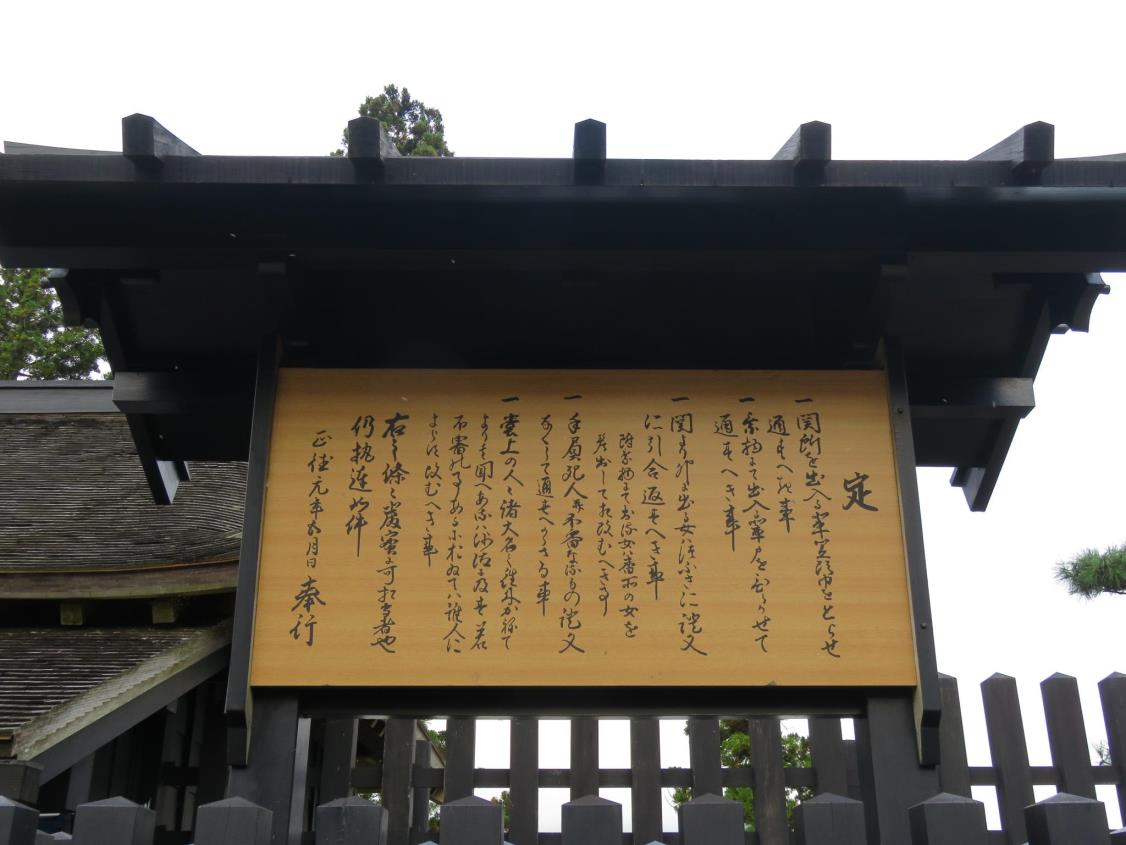 定
一関所を出入る輩笠頭巾をとらせ
通すへき事
一乗物にて出入輩戸をひらかせて
通すへき事
一関より外に出る女は つふさに證文
に引合通すへき事
附乗物にて出る女は番所の女を
差出して相改むへき事
一手負死人并不審なるもの證文
なくして通すへからさる事
一堂上の人々諸大名の往来かねて
より其聞へあるにハ沙汰に及ハす若
不審の事あるにおゐてハ誰人に
よらす改むへき事
右之條々厳密可相守者也
仍執達如件
正徳元年五月日 奉行